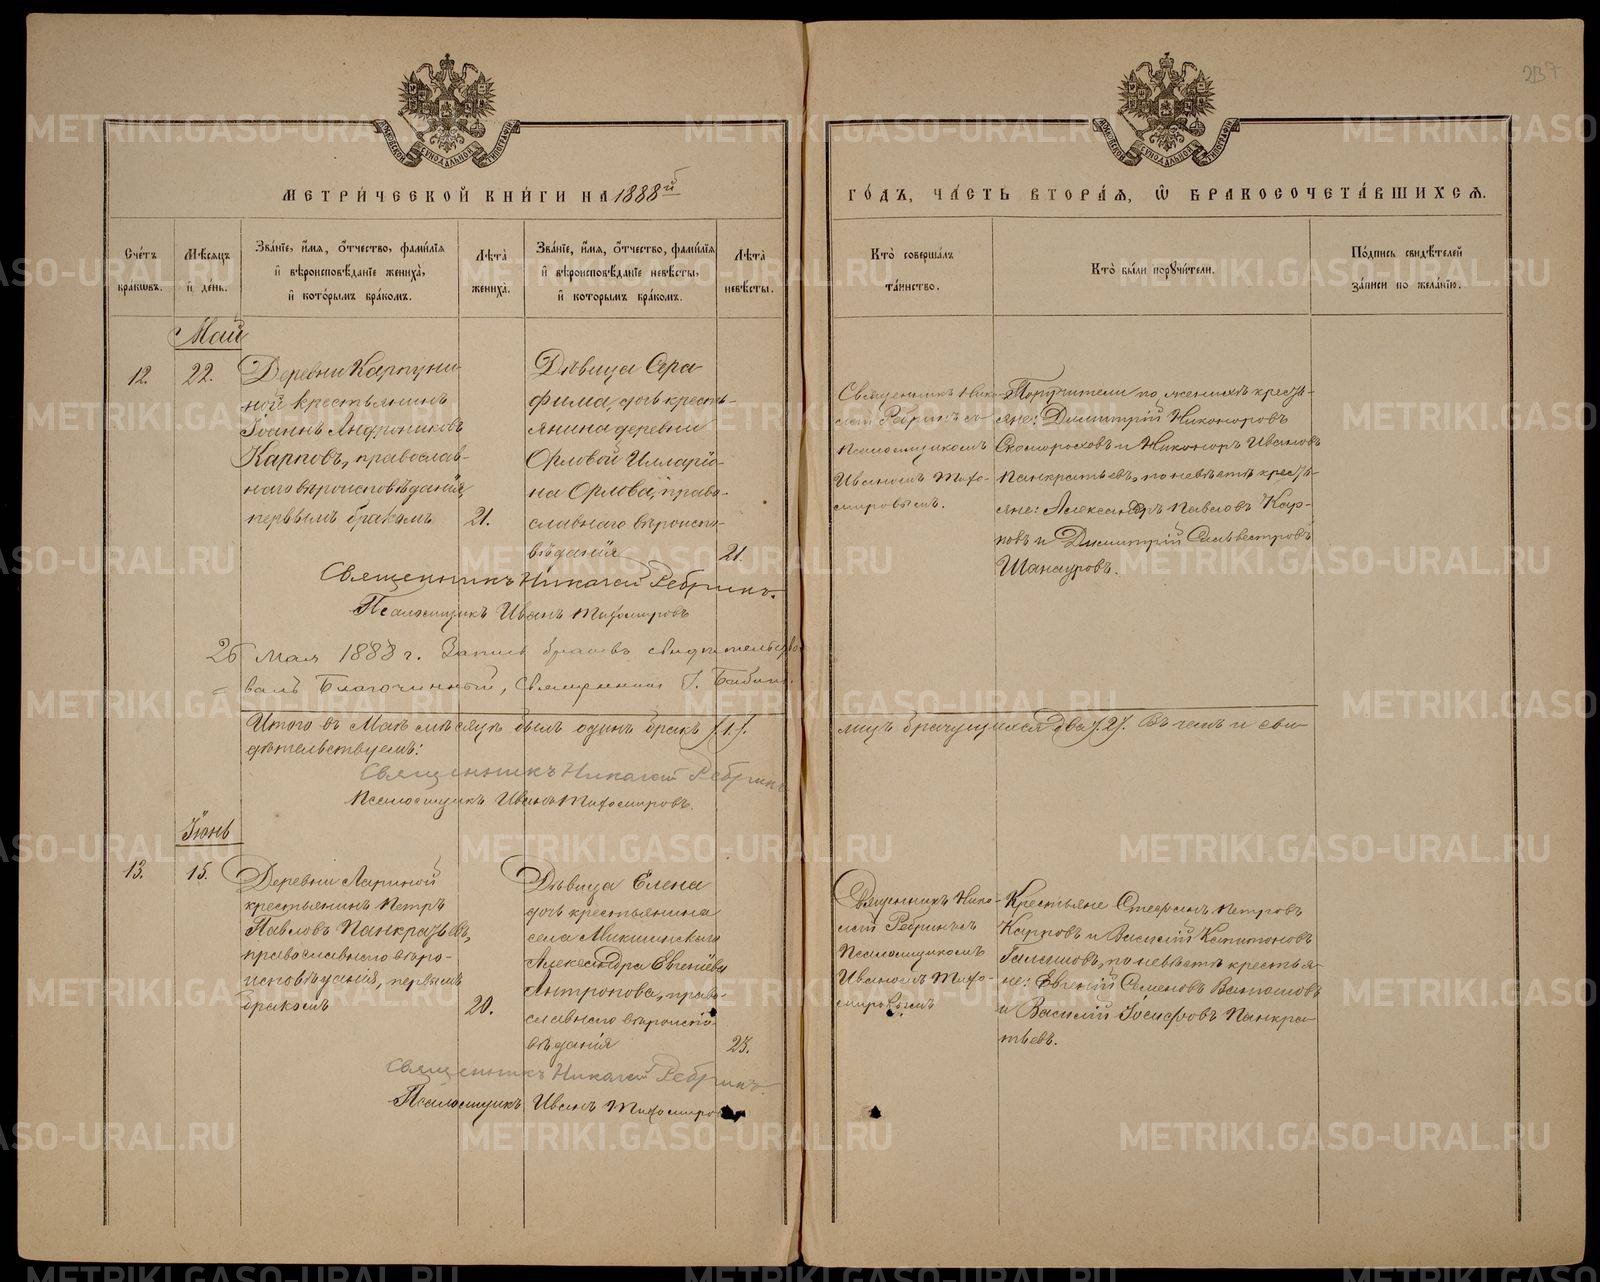 237
МОСКОВСКОЙ СѴНОДАЛЬНОЙ ТИПОГРАФІИ
МОСКОВСКОЙ СѴНОДАЛЬНОЙ ТИПОГРАФІИ
МЕТРИ́ЧЕСКОЙ КНИ́ГИ НА 1888й
ГО́ДЪ, ЧА́СТЬ ВТОРА́Я, Ѿ БРАКОСОЧЕТА́ВШИХСЯ.
Сче́тъ бра́кѡвъ.
Мѣ́сяцъ и҆ де́нь.
Зва́нїе, и҆́мя, ѻ҆́тчество, фами́лїя и҆ вѣроисповѣ́данїе жениха̀, и҆ кото́рымъ бра́комъ.
Лѣта̀ жениха̀.
Зва́нїе, и҆́мя, ѻ҆́тчество, фами́лїя и҆ вѣроисповѣ́данїе невѣ́сты, и҆ кото́рымъ бра́комъ.
Лѣта̀ невѣ́сты.
Кто̀ соверша́лъ та́инство.
Кто̀ бы́ли порꙋчи́тели.
По́дпись свидѣ́телей за́писи по жела́нїю.
Май
12.
22.
Деревни Карпуни-
ной крестьянинъ
Іоаннъ Андрониковъ
Карповъ, православ-
наго вѣроисповѣданія
первымъ бракомъ
21.
Дѣвица Сера
фима, дочь кресть-
янина деревни
Орловой Илларіо-
на Орлова, право-
славнаго вѣроиспо-
вѣданія
21.
Священникъ Нико-
лай Ребринъ съ
Псаломщикомъ
Иваномъ Тихо-
мировымъ.
Поручители по женихѣ кресть-
яне: Димитрій Никоноровъ
Скомороховъ и Никоноръ Ивановъ
Панкратьевъ, по невѣстѣ кресть-
яне: Александръ Павловъ Кар-
повъ и Димитрій Сильвестровъ
Шанауровъ.
Священникъ Николай Ребринъ.
Псаломщикъ Иванъ Тихомировъ
26 Мая 1888 г. Запись браковъ свидѣтельство-
валъ Благочинный, Священникъ
Итого въ Маѣ мѣсяцѣ былъ одинъ бракъ /1/.
лицъ брачущихся два /2/. Въ чемъ и сви-
дѣтельствуемъ:
Священникъ Николай Ребринъ
Псаломщикъ Иванъ Тихомировъ.
Іюнь
13.
15.
Деревни Лариной
крестьянинъ Петръ
Павловъ Панкратьевъ,
православнаго вѣро-
исповѣданія, первымъ
бракомъ
20.
Дѣвица Елена
дочь крестьянина
села Микшинскаго
Александра Евгеніева
Антропова, право-
славнаго вѣроиспо-
вѣданія
23.
Священникъ Нико-
лай Ребринъ съ
Псаломщикомъ
Иваномъ Тихо-
мировымъ
Крестьяне Стефанъ Петровъ
Карповъ и Василій Капитоновъ
Галашовъ, по невѣстѣ крестья-
не: Евгеній Семеновъ
и Василій Іосифовъ Панкра-
тьевъ.
Священникъ Николай Ребринъ
Псаломщикъ Иванъ Тихомировъ